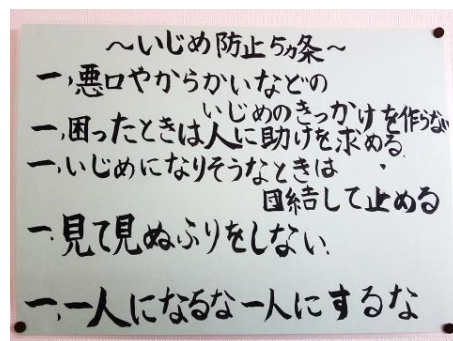 ～いじめ防止5ヵ条～
一、悪口やからかいなどの
いじめのきっかけを作らない
一、困ったときは人に助けを求める
一、いじめになりそうなときは
団結して止める
一、見て見ぬふりをしない、
一、一人になるな一人にするな